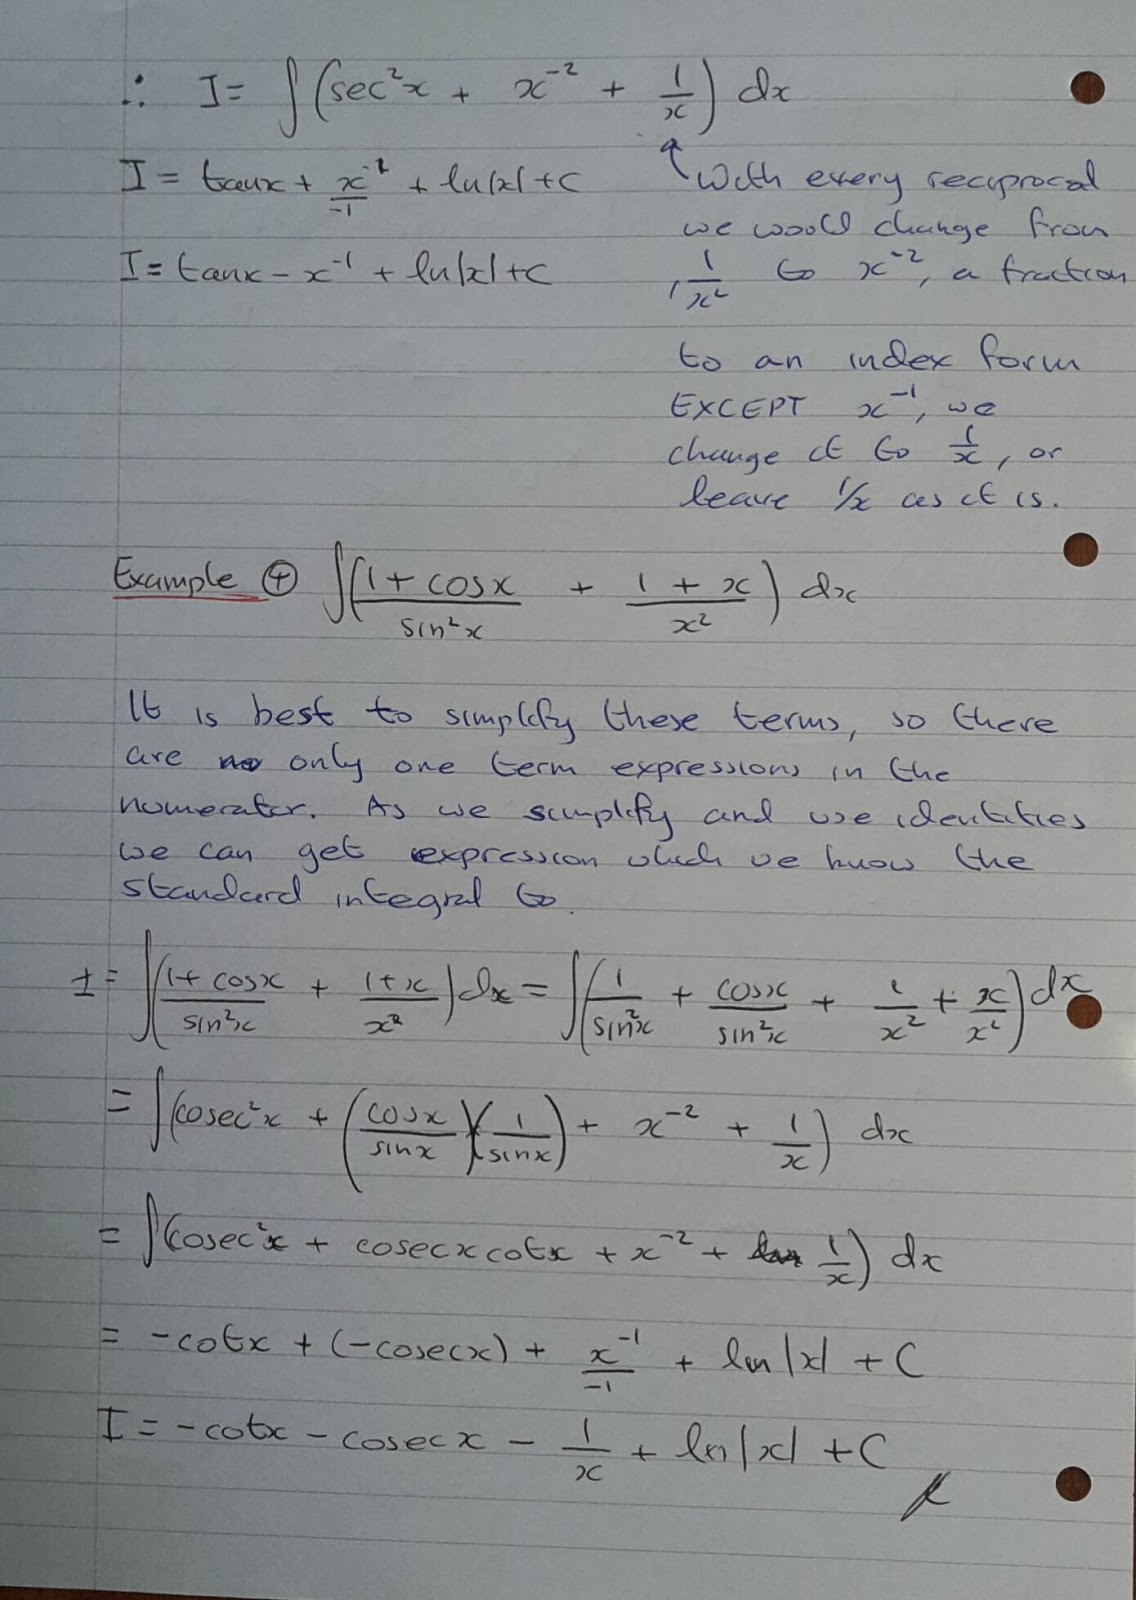 ∴ I = ∫(sec²x + x⁻² + 1/x) dx
I = tanx + x⁻¹/-1 + ln|x| + C
I = tanx - x⁻¹ + ln|x| + C
With every reciprocal
we would change from
1/x² to x⁻², a fraction
to an index form
EXCEPT x⁻¹, we
change it to 1/x, or
leave 1/x as it is.
Example ④ ∫((1 + cosx)/sin²x + (1 + x)/x²) dx
It is best to simplify these terms, so there
are only one term expressions in the
numerator. As we simplify and use identities
we can get expression which we know the
standard integral to.
I = ∫((1 + cosx)/sin²x + (1 + x)/x²) dx = ∫(1/sin²x + cosx/sin²x + 1/x² + x/x²) dx
= ∫(cosec²x + (cosx/sinx)(1/sinx) + x⁻² + 1/x) dx
= ∫(cosec²x + cosecx cotx + x⁻² + 1/x) dx
= -cotx + (-cosecx) + x⁻¹/-1 + ln|x| + C
I = -cotx - cosecx - 1/x + ln|x| + C